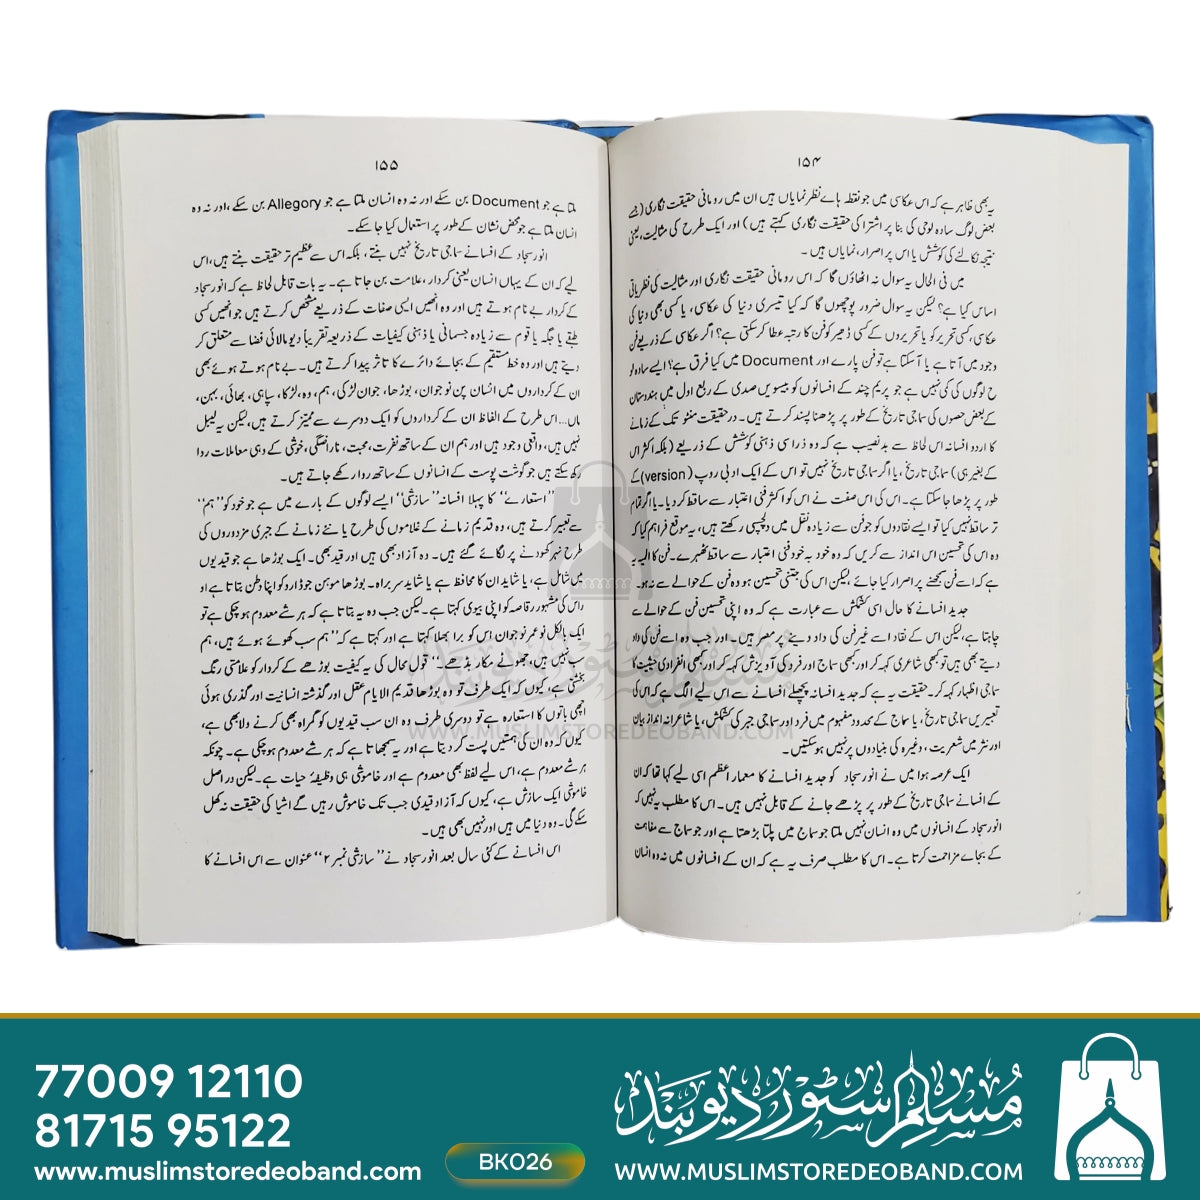 ۱۵۴
یہ بھی ظاہر ہے کہ اس عکاسی میں جو نقطہ ہاے نظر نمایاں ہیں ان میں رومانی حقیقت نگاری (جسے
بعض لوگ سادہ لوحی کی بنا پر اشتراکی حقیقت نگاری کہتے ہیں) اور ایک طرح کی مثالیت، یعنی
نتیجہ نکالنے کی کوشش یا اس پر اصرار، نمایاں ہیں۔
میں فی الحال یہ سوال نہ اٹھاؤں گا کہ اس رومانی حقیقت نگاری اور مثالیت کی نظریاتی
اساس کیا ہے؟ لیکن یہ سوال ضرور پوچھوں گا کہ کیا تیسری دنیا کی عکاسی، یا کسی بھی دنیا کی
عکاسی، کسی تحریر کو یا تحریروں کے کسی ڈھیر کو فن کا رتبہ عطا کر سکتی ہے؟ اگر عکاسی کے ذریعے فن
وجود میں آتا ہے یا آ سکتا ہے تو فن پارے اور Document میں کیا فرق ہے؟ ایسے سادہ لو
ح لوگوں کی کمی نہیں ہے جو پریم چند کے افسانوں کو بیسویں صدی کے ربع اول میں ہندوستان
کے بعض حصوں کی سماجی تاریخ کے طور پر پڑھنا پسند کرتے ہیں۔ درحقیقت منٹو تک کے زمانے
کا اردو افسانہ اس لحاظ سے بد نصیب ہے کہ وہ ذرا سی ذہنی کوشش کے ذریعے (بلکہ اکثر اس
کے بغیر ہی) سماجی تاریخ، یا اگر سماجی تاریخ نہیں تو اس کے ایک ادبی روپ (version) کے
طور پر پڑھا جا سکتا ہے۔ اس کی اس صفت نے اس کو اکثر فنی اعتبار سے ساقط کر دیا۔ یا اگر تمام
تر ساقط نہیں کیا تو ایسے نقادوں کو جو فن سے زیادہ نقل میں دلچسپی رکھتے ہیں، یہ موقع فراہم کیا کہ
وہ اس کی تحسین اس انداز سے کریں کہ وہ خود بہ خود فنی اعتبار سے ساقط ٹھہرے۔ فن کا المیہ یہ
ہے کہ اسے فن سمجھنے پر اصرار کیا جائے، لیکن اس کی جتنی تحسین ہو وہ فن کے حوالے سے نہ ہو۔
جدید افسانے کا حال اسی کشمکش سے عبارت ہے کہ وہ اپنی تحسین فن کے حوالے سے
چاہتا ہے، لیکن اس کے نقاد اسے غیر فن کی داد دینے پر مصر ہیں۔ اور جب وہ اسے فن کی داد
دیتے بھی ہیں تو کبھی شاعری کہہ کر اور کبھی سماج اور فرد کی آویزش کہہ کر اور کبھی انفرادی حیثیت کا
سماجی اظہار کہہ کر۔ حقیقت یہ ہے کہ جدید افسانہ پچھلے افسانے سے اس لیے الگ ہے کہ اس کی
تعبیریں سماجی تاریخ، یا سماج کے محدود مفہوم میں فرد اور سماجی جبر کی کشمکش، یا شاعرانہ انداز بیان
اور نثر میں شعریت، وغیرہ کی بنیادوں پر نہیں ہو سکتیں۔
ایک عرصہ ہوا میں نے انور سجاد کو جدید افسانے کا معمار اعظم اسی لیے کہا تھا کہ ان
کے افسانے سماجی تاریخ کے طور پر پڑھے جانے کے قابل نہیں ہیں۔ اس کا مطلب یہ نہیں کہ
انور سجاد کے افسانوں میں وہ انسان نہیں ملتا جو سماج میں پلتا بڑھتا ہے اور جو سماج سے مفاہمت
کے بجاے مزاحمت کرتا ہے۔ اس کا مطلب صرف یہ ہے کہ ان کے افسانوں میں نہ وہ انسان
۱۵۵
ملتا ہے جو Document بن سکے اور نہ وہ انسان ملتا ہے جو Allegory بن سکے، اور نہ وہ
انسان ملتا ہے جو محض نشان کے طور پر استعمال کیا جا سکے۔
انور سجاد کے افسانے سماجی تاریخ نہیں بنتے، بلکہ اس سے عظیم تر حقیقت بنتے ہیں، اس
لیے کہ ان کے یہاں انسان یعنی کردار، علامت بن جاتا ہے۔ یہ بات قابل لحاظ ہے کہ انور سجاد
کے کردار بے نام ہوتے ہیں اور وہ انھیں ایسی صفات کے ذریعے مشخص کرتے ہیں جو انھیں کسی
طبقے یا جگہ یا قوم سے زیادہ جسمانی یا ذہنی کیفیات کے ذریعہ تقریباً دیو مالائی فضا سے متعلق کر
دیتے ہیں اور وہ خط مستقیم کے بجائے دائرے کا تاثر پیدا کرتے ہیں۔ بے نام ہوتے ہوئے بھی
ان کے کرداروں میں انسان پن نوجوان، بوڑھا، جوان لڑکی، ہم، وہ، لڑکا، سپاہی، بھائی، بہن،
ماں... اس طرح کے الفاظ ان کے کرداروں کو ایک دوسرے سے ممیّز کرتے ہیں، لیکن یہ لیبل
نہیں ہیں، واقعی وجود ہیں اور ہم ان کے ساتھ نفرت، محبت، ناراضگی، خوشی کے وہی معاملات روا
رکھ سکتے ہیں جو گوشت پوست کے انسانوں کے ساتھ روا رکھے جاتے ہیں۔
''استعارے'' کا پہلا افسانہ ''سازشی'' ایسے لوگوں کے بارے میں ہے جو خود کو ''ہم''
سے تعبیر کرتے ہیں، وہ قدیم زمانے کے غلاموں کی طرح یا نئے زمانے کے جبری مزدوروں کی
طرح نہر کھودنے پر لگائے گئے ہیں۔ وہ آزاد بھی ہیں اور قید بھی۔ ایک بوڑھا ہے جو قیدیوں
میں شامل ہے، یا شاید ان کا محافظ ہے یا شاید سربراہ۔ بوڑھا موہن جوڈارو کو اپنا وطن بتاتا ہے او
ر اس کی مشہور رقاصہ کو اپنی بیوی کہتا ہے۔ لیکن جب وہ یہ بتاتا ہے کہ ہر شے معدوم ہو چکی ہے تو
ایک بالکل نوعمر نوجوان اس کو برا بھلا کہتا ہے اور کہتا ہے کہ ''ہم سب کھوئے ہوئے ہیں، ہم
سب نہیں ہیں، جھوٹے مکار بڈھے۔'' قول محال کی یہ کیفیت بوڑھے کے کردار کو علامتی رنگ
بخشتی ہے، کیوں کہ ایک طرف تو وہ بوڑھا قدیم الایام عقل اور گذشتہ انسانیت اور گذری ہوئی
اچھی باتوں کا استعارہ ہے تو دوسری طرف وہ ان سب قیدیوں کو گمراہ بھی کرنے والا بھی ہے،
کیوں کہ وہ ان کی ہمتیں پست کر دیتا ہے اور یہ سمجھاتا ہے کہ ہر شے معدوم ہو چکی ہے۔ چونکہ
ہر شے معدوم ہے، اس لیے لفظ بھی معدوم ہے اور خاموشی ہی وظیفۂ حیات ہے۔ لیکن دراصل
خاموشی ایک سازش ہے، کیوں کہ آزاد قیدی جب تک خاموش رہیں گے اشیا کی حقیقت نہ کھل
سکے گی۔ وہ دنیا میں ہیں اور نہیں بھی ہیں۔
اس افسانے کے کئی سال بعد انور سجاد نے ''سازشی نمبر ۲'' عنوان سے اس افسانے کا
مسلم سٹور دیوبند
WWW.MUSLIMSTOREDEOBAND.COM
77009 12110
81715 95122
www.muslimstoredeoband.com
BK026
مسلم سٹور دیوبند
WWW.MUSLIMSTOREDEOBAND.COM